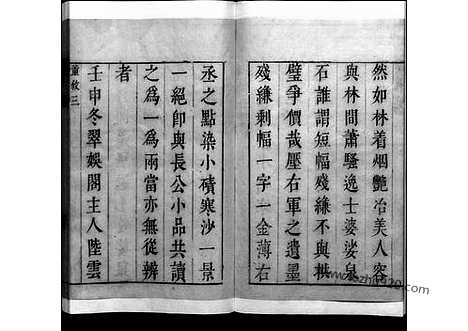 然如林着烟艷冶美人容
與林間蕭騷逸士婆娑泉
石誰謂短幅殘縑不與拱
璧爭價哉壓右軍之遺墨
殘縑剩幅一字一金薄右
丞之點染小磧寒沙一景
一絕卽與長公小品共讀
之為一為兩當亦無從辨
者
壬申冬翠娛閣主人陸雲
董敘三